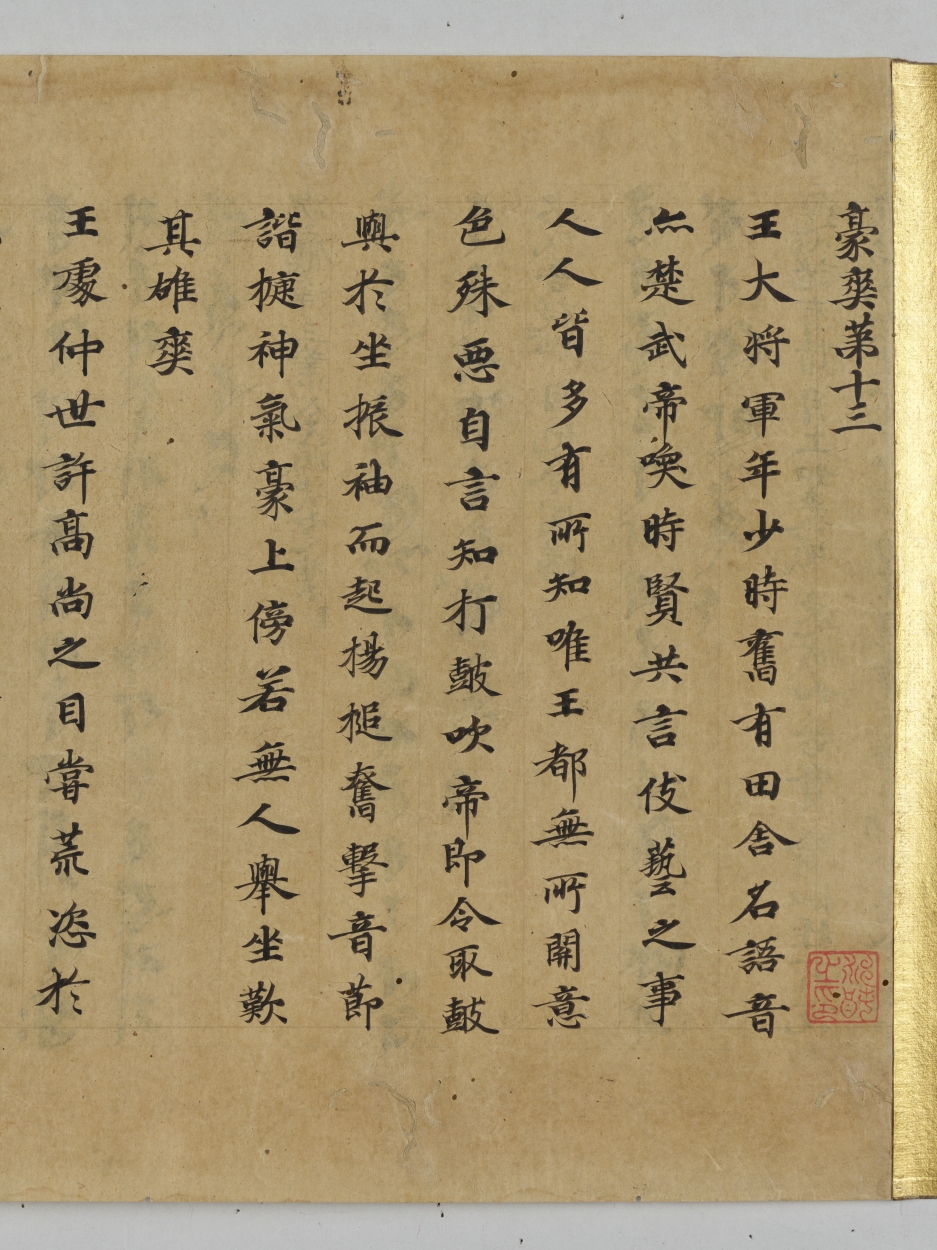 豪爽第十三
王大將軍年少時舊有田舍名語音
亦楚武帝喚時賢共言伎藝之事
人人皆多有所知唯王都無所開意
色殊惡自言知打鼓吹帝即令取鼓
與於坐振袖而起揚槌奮擊音節
諧捷神氣豪上傍若無人舉坐歎
其雄爽
王處仲世許高尚之目嘗荒恣於